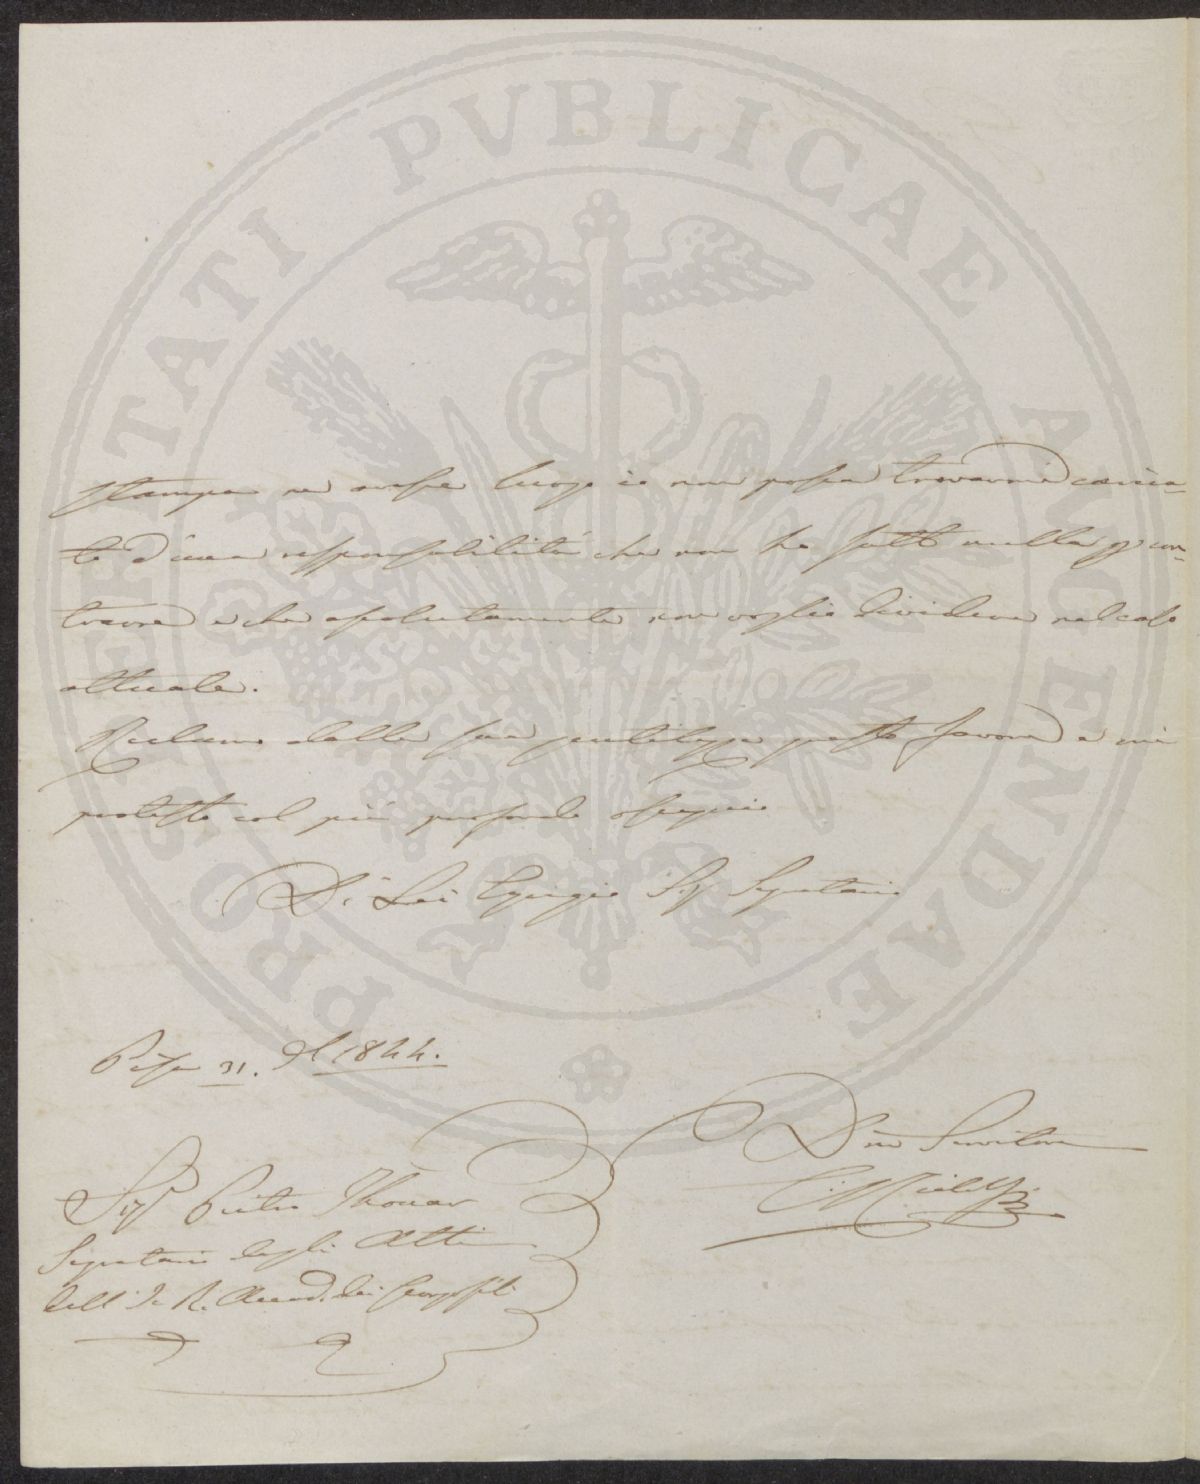 PROSPERITATI PVBLICAE AVGENDAE
stampa ne avesse luogo io non possa trovarmi carica-
to d'una responsabilità che non ho fatto nulla p con-
trarre e che assolutamente non voglio dividere nel caso
attuale.
Reclamo dalla sua gentilezza questo favore e mi
protesto col più profondo ossequio
Di Lei Egregio Sig Segretario
Pisa 31. 1844.
Dmo Servitore
Sigr Pietro Thouar
Segretario degli Atti
dell'I. e R. Accad. dei Georgofili